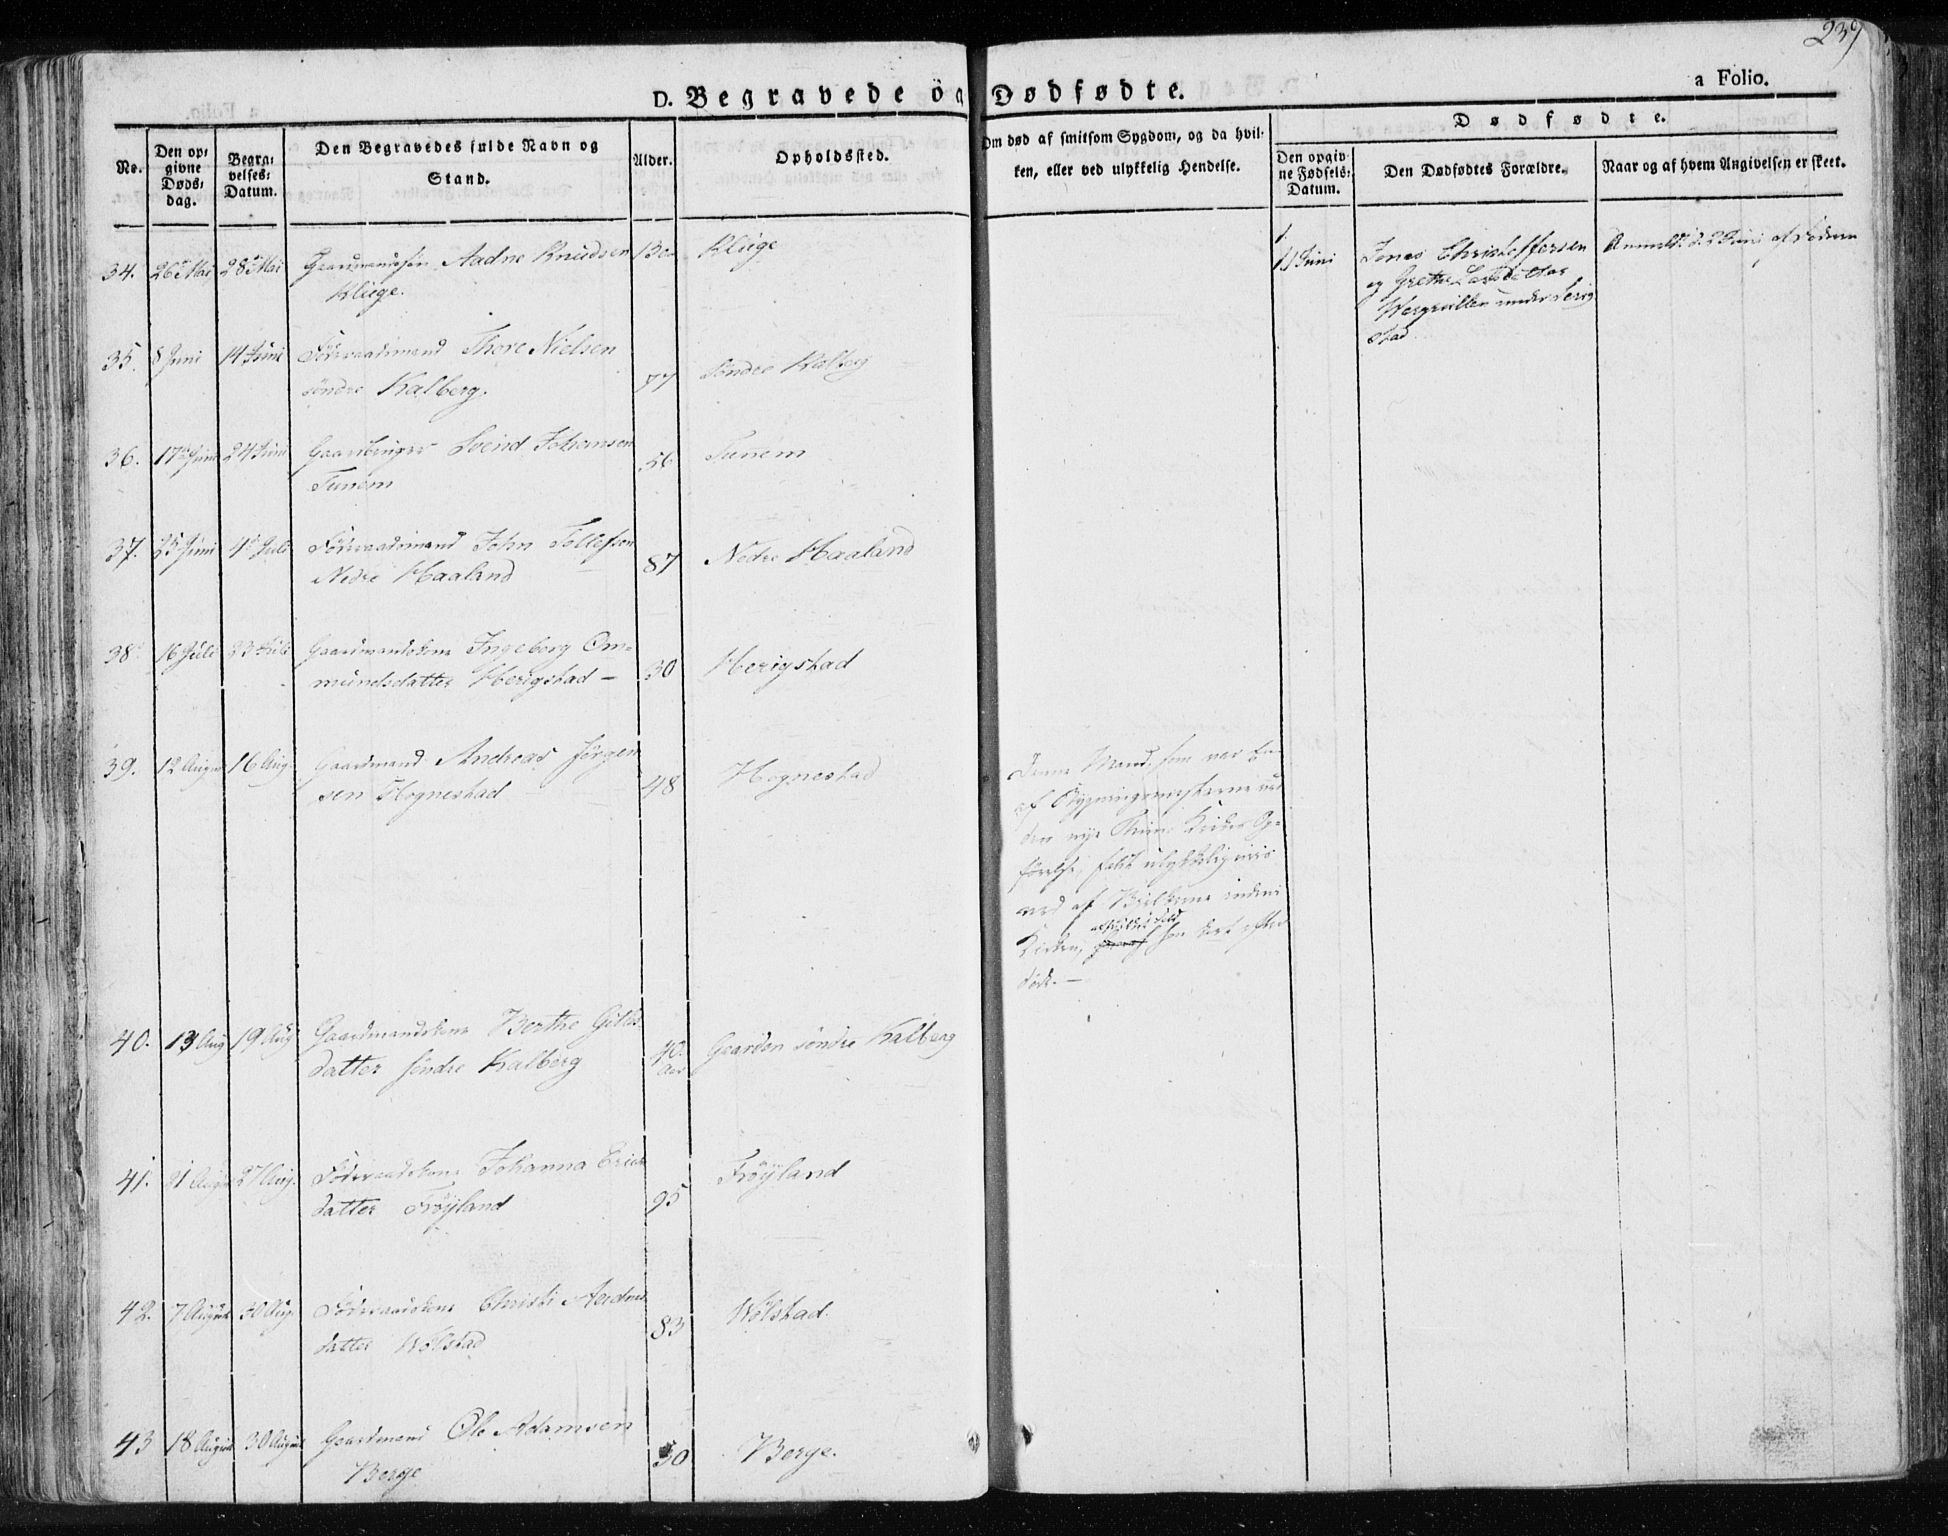 239
D. Begravede og Dødfødte.
a Folio.
No.
Den op=
givne
Døds=
dag.
Begra=
velses=
Datum.
Den Begravedes fulde Navn og
Stand.
Alder.
Opholdssted.
Om død af smitsom Sygdom, og da hvil=
ken, eller ved ulykkelig Hendelse.
Dødfødte.
Den opgiv=
ne Fødsels=
Datum.
Den Dødfødtes Forældre.
Naar og af hvem Angivelsen er skeet.
34. 26 Mai 28 Mai Aadne Knudsen Kluge
Kluge.
1. Juni Jonas Christoffersen
og Grethe
under Herig
stad
2 Juni af Faderen
35. 8 Juni 14 Juni Föderaadsmand Thore Nielsen
søndre Kalberg. 77 Söndre Kalberg
36. 17 Juni 24 Juni Gaardbruger Svend Johansen
Tunem 56 Tunem
37. 25 Juni 4 Juli Föderaadsmand John Tollefsen
Nedre Haaland 87 Nedre Haaland
38. 16 Juli 23 Juli Gaardmandskone Ingeborg Om=
mundsdatter Herigstad — 30 Herigstad
39. 12 August 16 Aug. Gaardmand Andreas Jörgen
sen Hognestad 48 Hognestad
Denne Mand, som var En
af Bygningsmesterne ved
den nye Thime Kirkes Op=
förelse, faldt ulykkeligviis
ned af Bielkerne inden i
Kirken, som kort efter
døde. —
40. 13 Aug 19 Aug Gaardmandskone Berthe Gitles
datter søndre Kalberg 40. Aar Gaarden söndre Kalberg
41. 21 August 27 Aug. Föderaadskone Johanna Erics
datter Fröyland 95 Fröyland
42. 7 August 30 Aug. Föderaadskone Christi Aadnes
datter Wölstad 83 Wölstad.
43 18 August 30 August Gaardmand Ole Adamsen
Berge 50 Berge.